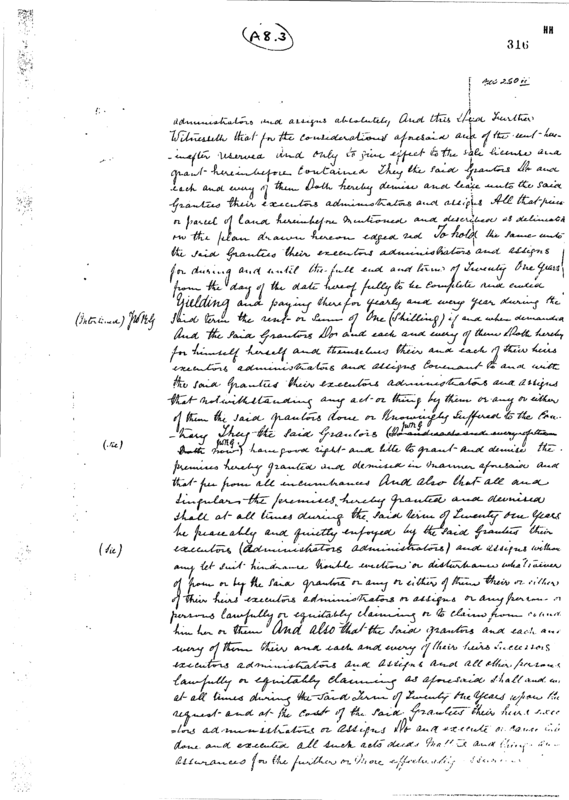 (A8.3)
HH
316
administrators and assigns absolutely, And this Deed Further
Witnesseth that for the considerations aforesaid and of the rent here-
-inafter reserved and only to give effect to the sale license and
grant hereinbefore contained They the said Grantors Do and
each and every of them Doth hereby demise and lease unto the said
Grantees their executors administrators and assigns All that piece
or parcel of land hereinbefore mentioned and described as delineated
on the plan drawn hereon edged red To hold the same unto
the said Grantees their executors administrators and assigns
for during and until the full end and term of Twenty One Years
from the day of the date hereof fully to be complete and ended
Yielding and paying therefor yearly and every year during the
(Interlined) said term the rent or Sum of One (Shilling) if and when demanded
And the said Grantors Do and each and every of them Doth hereby
for himself herself and themselves their and each of their heirs
executors administrators and assigns Covenant to and with
the said Grantees their executors administrators and assigns
that notwithstanding any act or thing by them or any or either
of them the said grantors done or Knowingly Suffered to the Con-
-trary They the said Grantors (Do and each and every of them
(sic) Doth now) have good right and title to grant and demise the
premises hereby granted and demised in manner aforesaid and
that free from all incumbrances And also that all and
Singular the premises hereby granted and demised
shall at all times during the said term of Twenty One Years
be peaceably and quietly enjoyed by the said Grantees their
(sic) executors (administrators administrators) and assigns without
any let suit hindrance trouble eviction or disturbance whatsoever
of from or by the said grantors or any or either of them their or either
of their heirs executors administrators or assigns or any person or
persons lawfully or equitably claiming or to claim from
him her or them And also that the said grantors and each and
every of them their and each and every of their heirs successors
executors administrators and assigns and all other persons
lawfully or equitably claiming as aforesaid shall and
at all times during the said Term of Twenty One Years upon the
request and at the cost of the said Grantees their heirs exec-
-tors administrators or assigns Do and execute or cause
done and executed all such acts deeds matters and things and
assurances for the further or more effectually